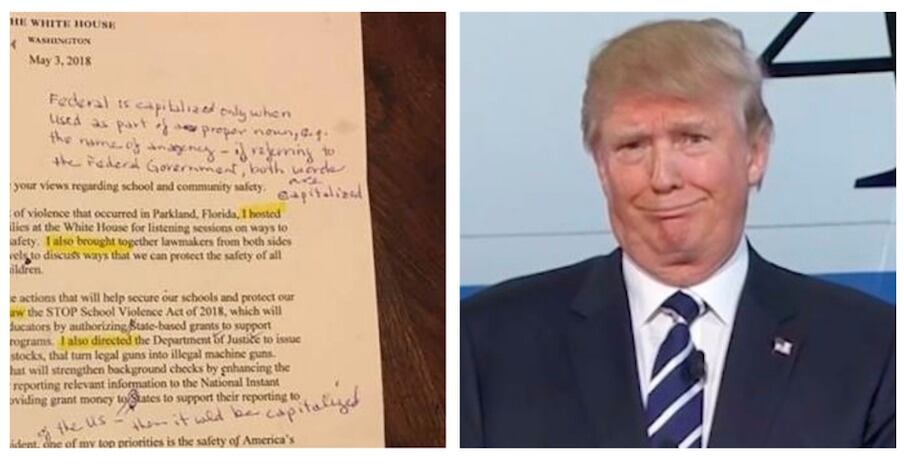 THE WHITE HOUSE
WASHINGTON
May 3, 2018
Federal is capitalized only when
used as part of a proper noun, e.g.
the name of an agency - if referring to
the Federal Government, both words
are
capitalized
your views regarding school and community safety.
of violence that occurred in Parkland, Florida, I hosted
lies at the White House for listening sessions on ways to
safety. I also brought together lawmakers from both sides
vels to discuss ways that we can protect the safety of all
ildren.
e actions that will help secure our schools and protect our
aw the STOP School Violence Act of 2018, which will
ducators by authorizing State-based grants to support
rograms. I also directed the Department of Justice to issue
stocks, that turn legal guns into illegal machine guns.
hat will strengthen background checks by enhancing the
reporting relevant information to the National Instant
oviding grant money to States to support their reporting to
of the US - then it wld be capitalized
ident, one of my top priorities is the safety of America's
A